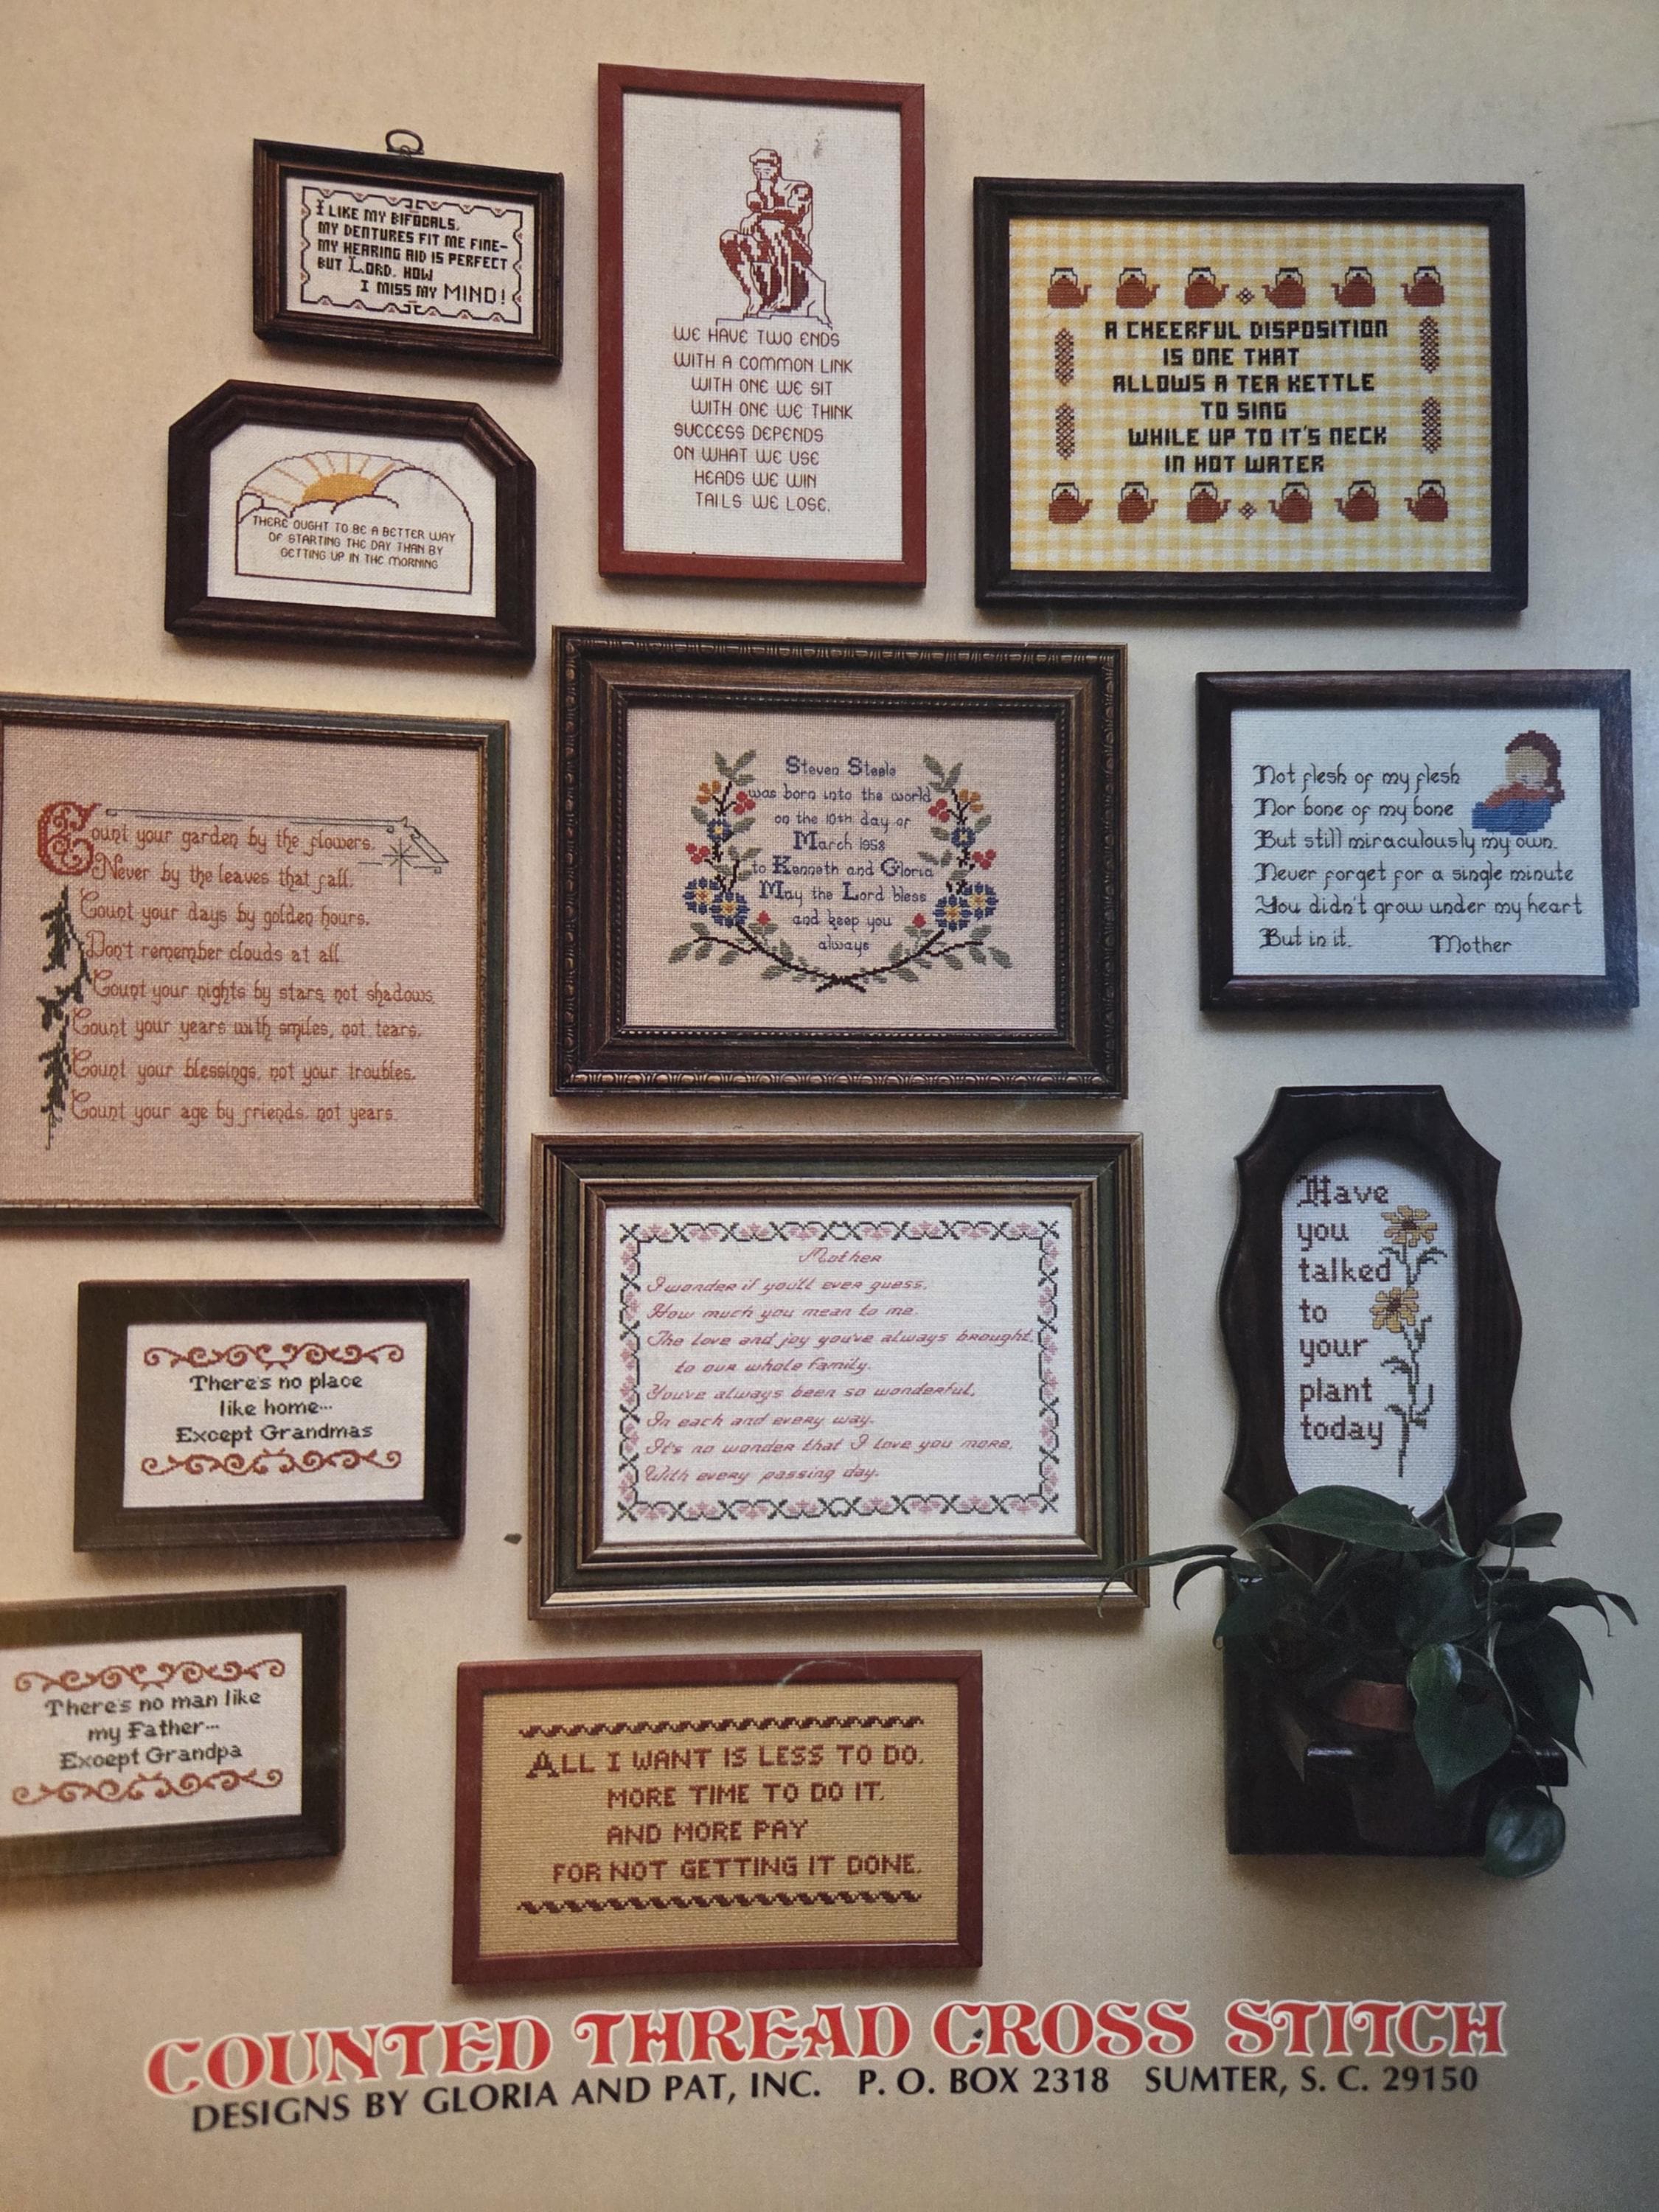 I LIKE MY BIFOCALS,
MY DENTURES FIT ME FINE-
MY HEARING AID IS PERFECT
BUT LORD, HOW
I MISS MY MIND!
WE HAVE TWO ENDS
WITH A COMMON LINK
WITH ONE WE SIT
WITH ONE WE THINK
SUCCESS DEPENDS
ON WHAT WE USE
HEADS WE WIN
TAILS WE LOSE.
A CHEERFUL DISPOSITION
IS ONE THAT
ALLOWS A TEA KETTLE
TO SING
WHILE UP TO IT'S NECK
IN HOT WATER
THERE OUGHT TO BE A BETTER WAY
OF STARTING THE DAY THAN BY
GETTING UP IN THE MORNING
Count your garden by the flowers,
Never by the leaves that fall.
Count your days by golden hours,
Don't remember clouds at all.
Count your nights by stars, not shadows,
Count your years with smiles, not tears.
Count your blessings, not your troubles,
Count your age by friends, not years.
Steven Steele
was born into the world
on the 10th day of
March 1958
to Kenneth and Gloria
May the Lord bless
and keep you
always
Not flesh of my flesh
Nor bone of my bone
But still miraculously my own.
Never forget for a single minute
You didn't grow under my heart
But in it. Mother
Mother
I wonder if you'll ever guess,
How much you mean to me.
The love and joy you've always brought,
to our whole family.
You've always been so wonderful,
In each and every way.
It's no wonder that I love you more,
With every passing day.
Have
you
talked
to
your
plant
today
There's no place
like home...
Except Grandmas
There's no man like
my Father...
Except Grandpa
ALL I WANT IS LESS TO DO,
MORE TIME TO DO IT,
AND MORE PAY
FOR NOT GETTING IT DONE.
COUNTED THREAD CROSS STITCH
DESIGNS BY GLORIA AND PAT, INC. P. O. BOX 2318 SUMTER, S. C. 29150